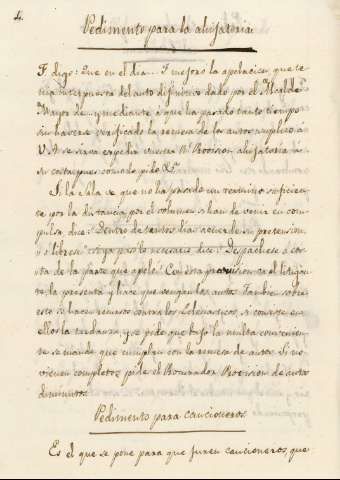 4.
Pedimento para la ahijatoria
F. digo: Que en el dia... T. mejoró la apelacion que te-
nia interpuesta del auto difinitivo dado por el Alcalde
Mayor de.. y mediante á que ha pasado tanto tiempo
sin haverse verificado la remesa de los autos suplico á
V. A. se sirva expedir vuestra Rl Provision ahijatoria á
su costa pues como lo pido &a
Si la Sala ve que no ha pasado un termino suficien-
te por la distancia por el volumen si han de venir en com-
pulsa, dice: "Dentro de tantos dias acuerde su pretension,
y si "libres" caso que pasó lo necesario dice: Despachese á cos-
ta de la parte que apeló". Con esta provision va el litigan-
te, la presenta y hace que vengan los autos. Tambien sobre
esto se hacen recursos contra los Eclesiasticos, si consiste en
ellos la tardanza, y se pide que bajo la multa convenien-
te se mande que cumplan con la remesa de autos. Si no
vienen completos pide el Procurador Provision de autos
diminutos.
Pedimento para caucioneros
Es el que se pone para que juren caucioneros, que